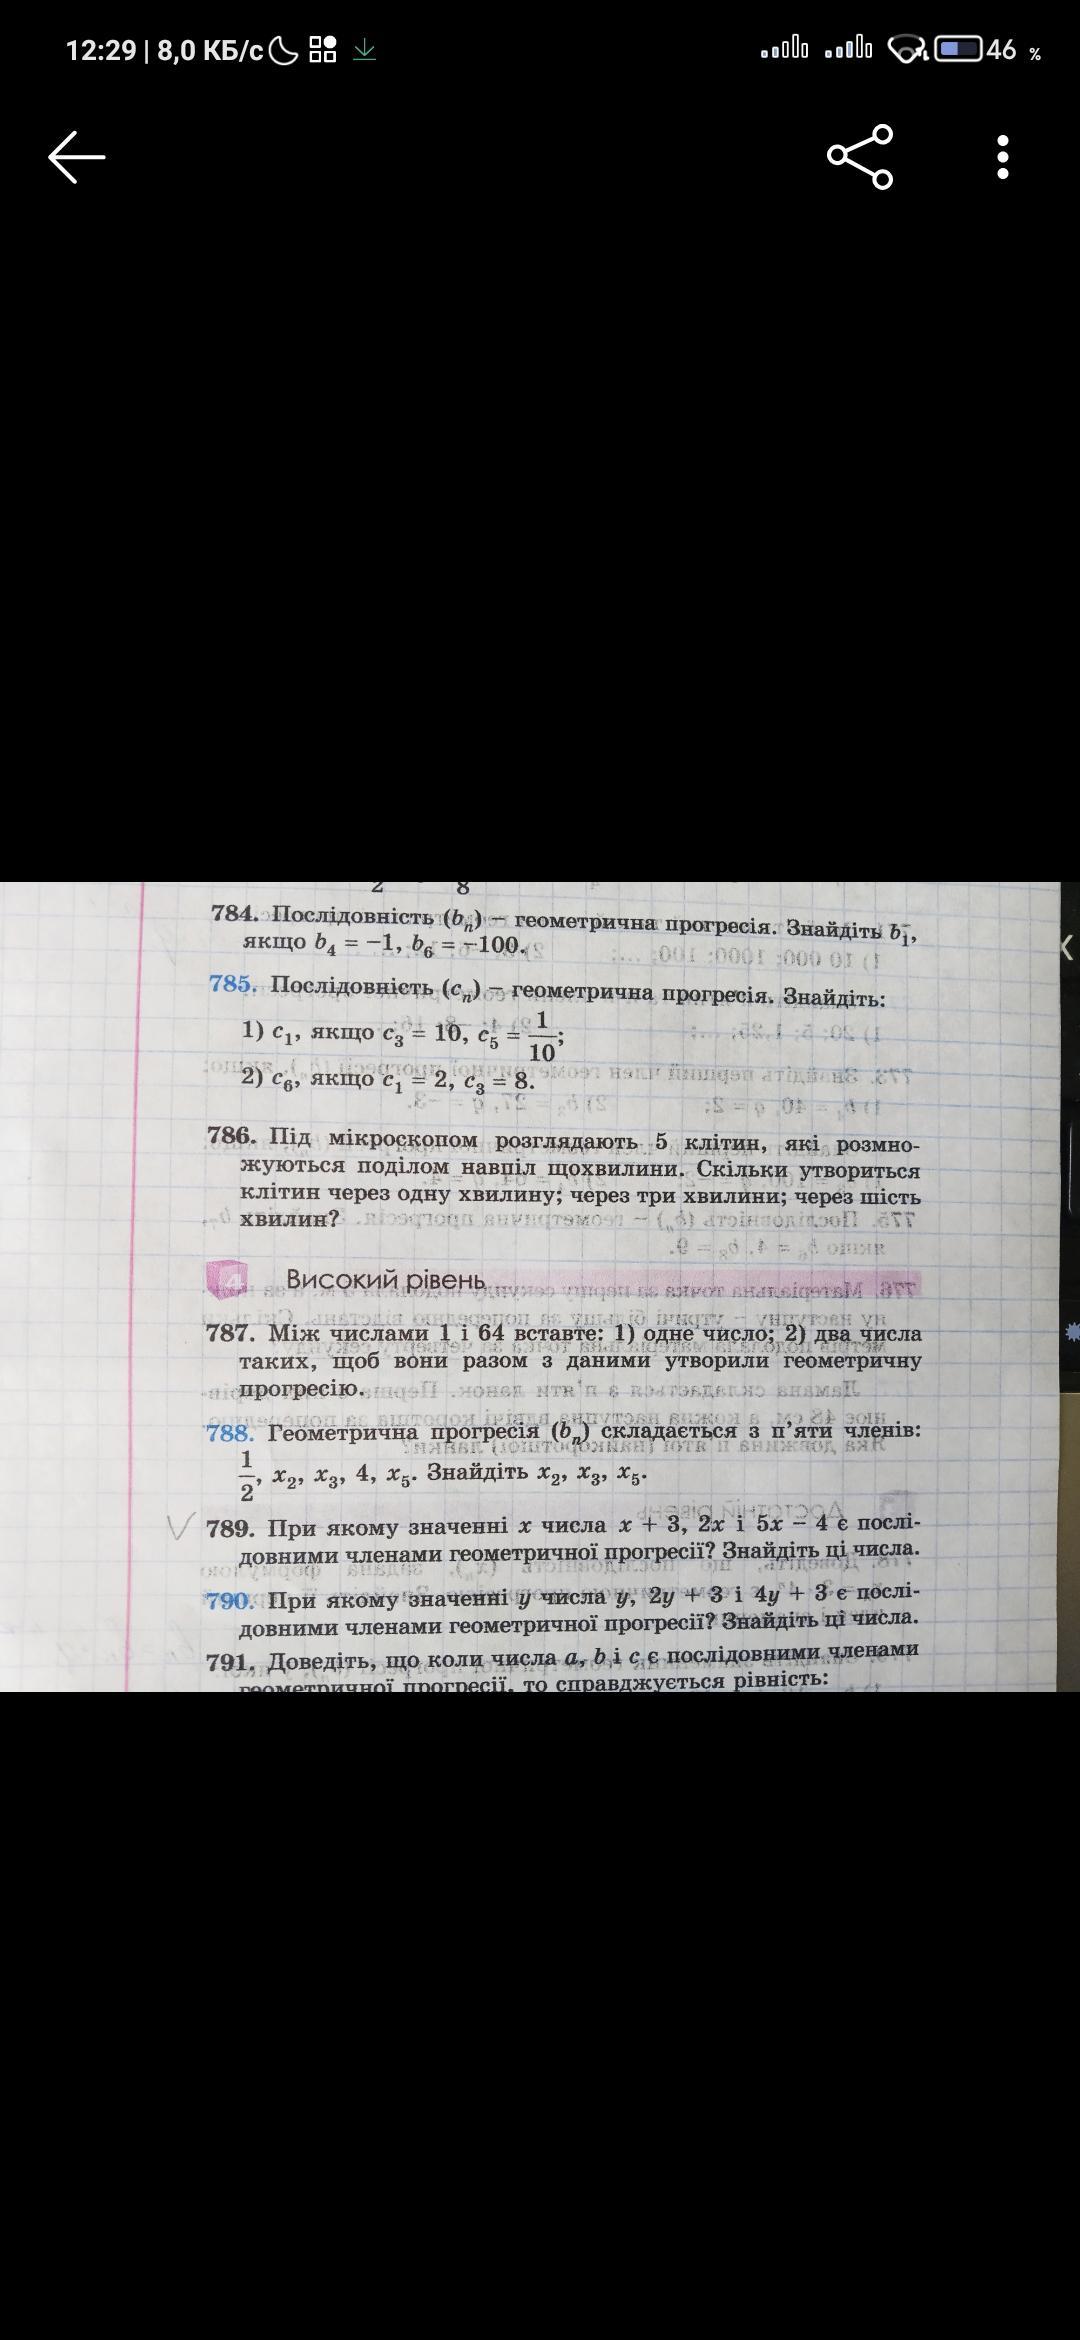 12:29 | 8,0 КБ/с 46 %
2 8
784. Послідовність (bₙ) – геометрична прогресія. Знайдіть b₁,
якщо b₄ = –1, b₆ = –100.
785. Послідовність (cₙ) – геометрична прогресія. Знайдіть:
1) c₁, якщо c₃ = 10, c₅ = 1/10;
2) c₆, якщо c₁ = 2, c₃ = 8.
786. Під мікроскопом розглядають 5 клітин, які розмно-
жуються поділом навпіл щохвилини. Скільки утвориться
клітин через одну хвилину; через три хвилини; через шість
хвилин?
4 Високий рівень
787. Між числами 1 і 64 вставте: 1) одне число; 2) два числа
таких, щоб вони разом з даними утворили геометричну
прогресію.
788. Геометрична прогресія (bₙ) складається з п’яти членів:
1/2, x₂, x₃, 4, x₅. Знайдіть x₂, x₃, x₅.
789. При якому значенні x числа x + 3, 2x і 5x – 4 є послі-
довними членами геометричної прогресії? Знайдіть ці числа.
790. При якому значенні y числа y, 2y + 3 і 4y + 3 є послі-
довними членами геометричної прогресії? Знайдіть ці числа.
791. Доведіть, що коли числа a, b і c є послідовними членами
геометричної прогресії, то справджується рівність: